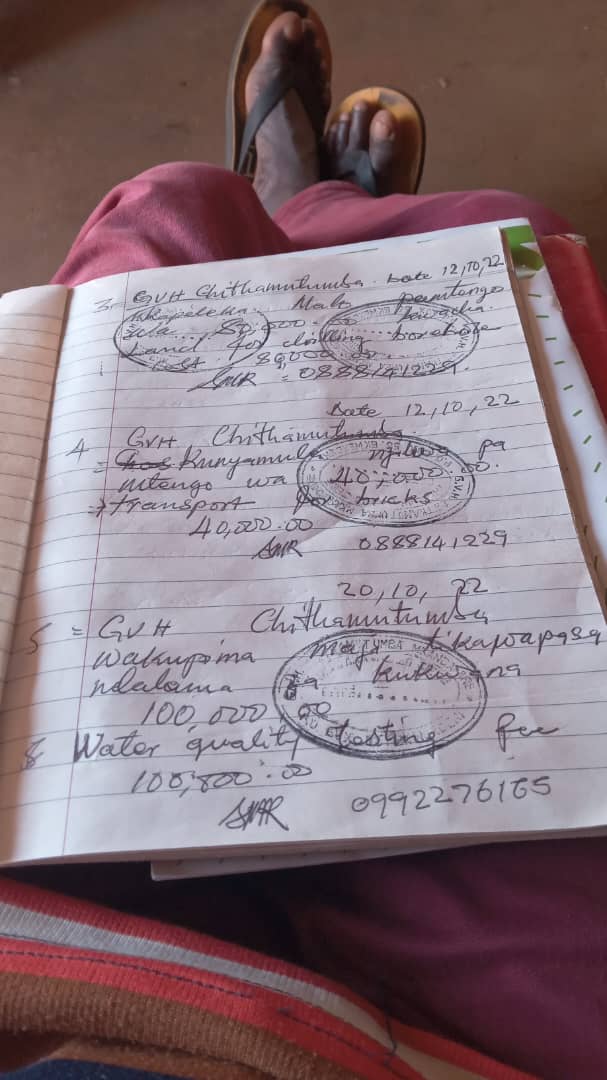 3. GVH Chithamutumba. Date 12,10,22
Malo pamtengo
wela 80,000.00 kwacha.
Land for drilling borehole
80000.00
0888141229.
Date 12,10,22
4 GVH Chithamutumba
= Kunyamula njelwa pa
mtengo wa 40,000.00.
→ Transport for bricks
40,000.00
0888141229
20,10,22
5 = GVH Chithamutumba
Wakupima maji tikawapasa
ndalama za kukwana
100,000.00
& Water quality testing fee
100,000.00
0992276165